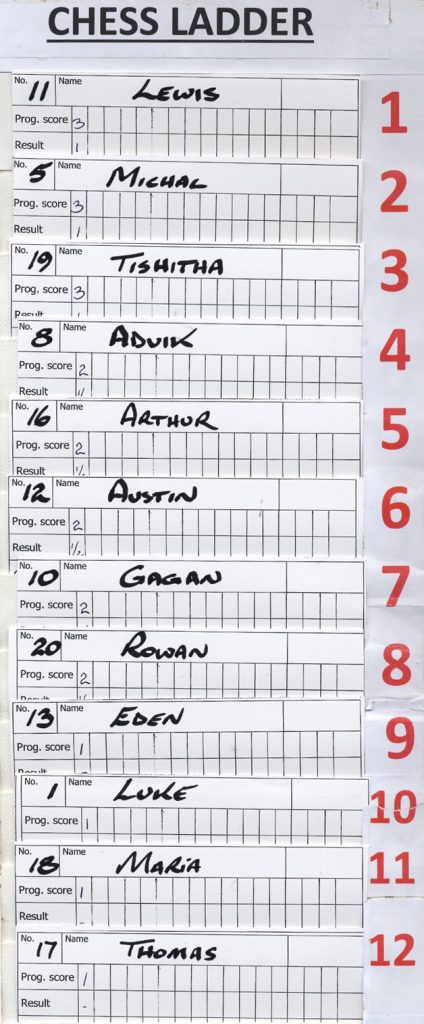 CHESS LADDER
No. 11 Name LEWIS 1
Prog. score 3
Result 1
No. 5 Name MICHAL 2
Prog. score 3
Result 1
No. 19 Name TISHITHA 3
Prog. score 3
Result
No. 8 Name ADVIK 4
Prog. score 2
Result
No. 16 Name ARTHUR 5
Prog. score 2
Result ½
No. 12 Name AUSTIN 6
Prog. score 2
Result ½
No. 10 Name GAGAN 7
Prog. score 2
No. 20 Name ROWAN 8
Prog. score 2
No. 13 Name EDEN 9
Prog. score 1
No. 1 Name LUKE 10
Prog. score 1
No. 18 Name MARIA 11
Prog. score 1
Result
No. 17 Name THOMAS 12
Prog. score 1
Result -